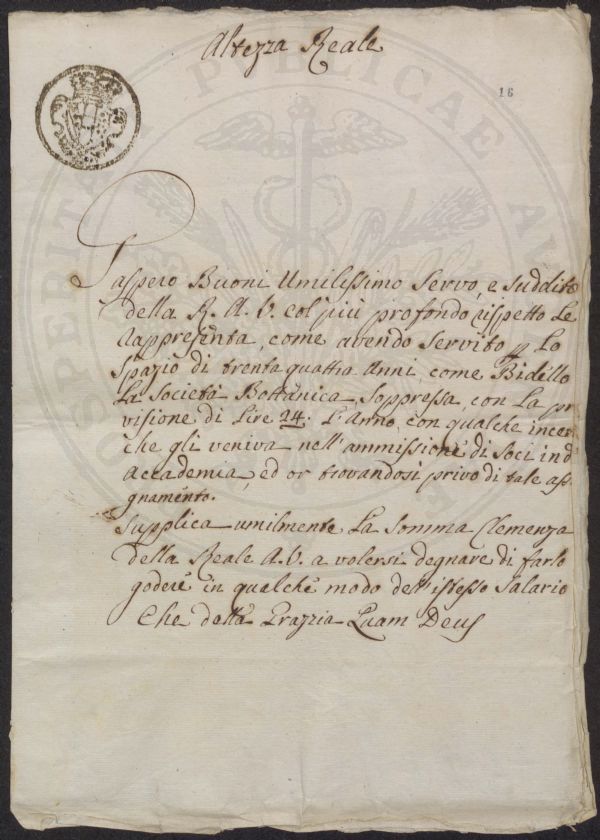 Altezza Reale
16
Gaspero Buoni Umilissimo Servo, e Suddito
della R. A. V. col più profondo rispetto Le
rappresenta, come avendo servito p Lo
spazio di trenta quattra Anni, come Bidello
La Società Bottanica Soppressa, con La pr
visione di Lire 24. L'Anno, con qualche incer
che gli veniva nell'ammissione di Soci in d
Accademia, ed or trovandosi privo di tale ass
gnamento.
Supplica umilmente La Somma Clemenza
della Reale A. V. a volersi degnare di farlo
godere in qualche modo dell'istesso Salario
Che della Grazzia Quam Deus
PUBLICAE